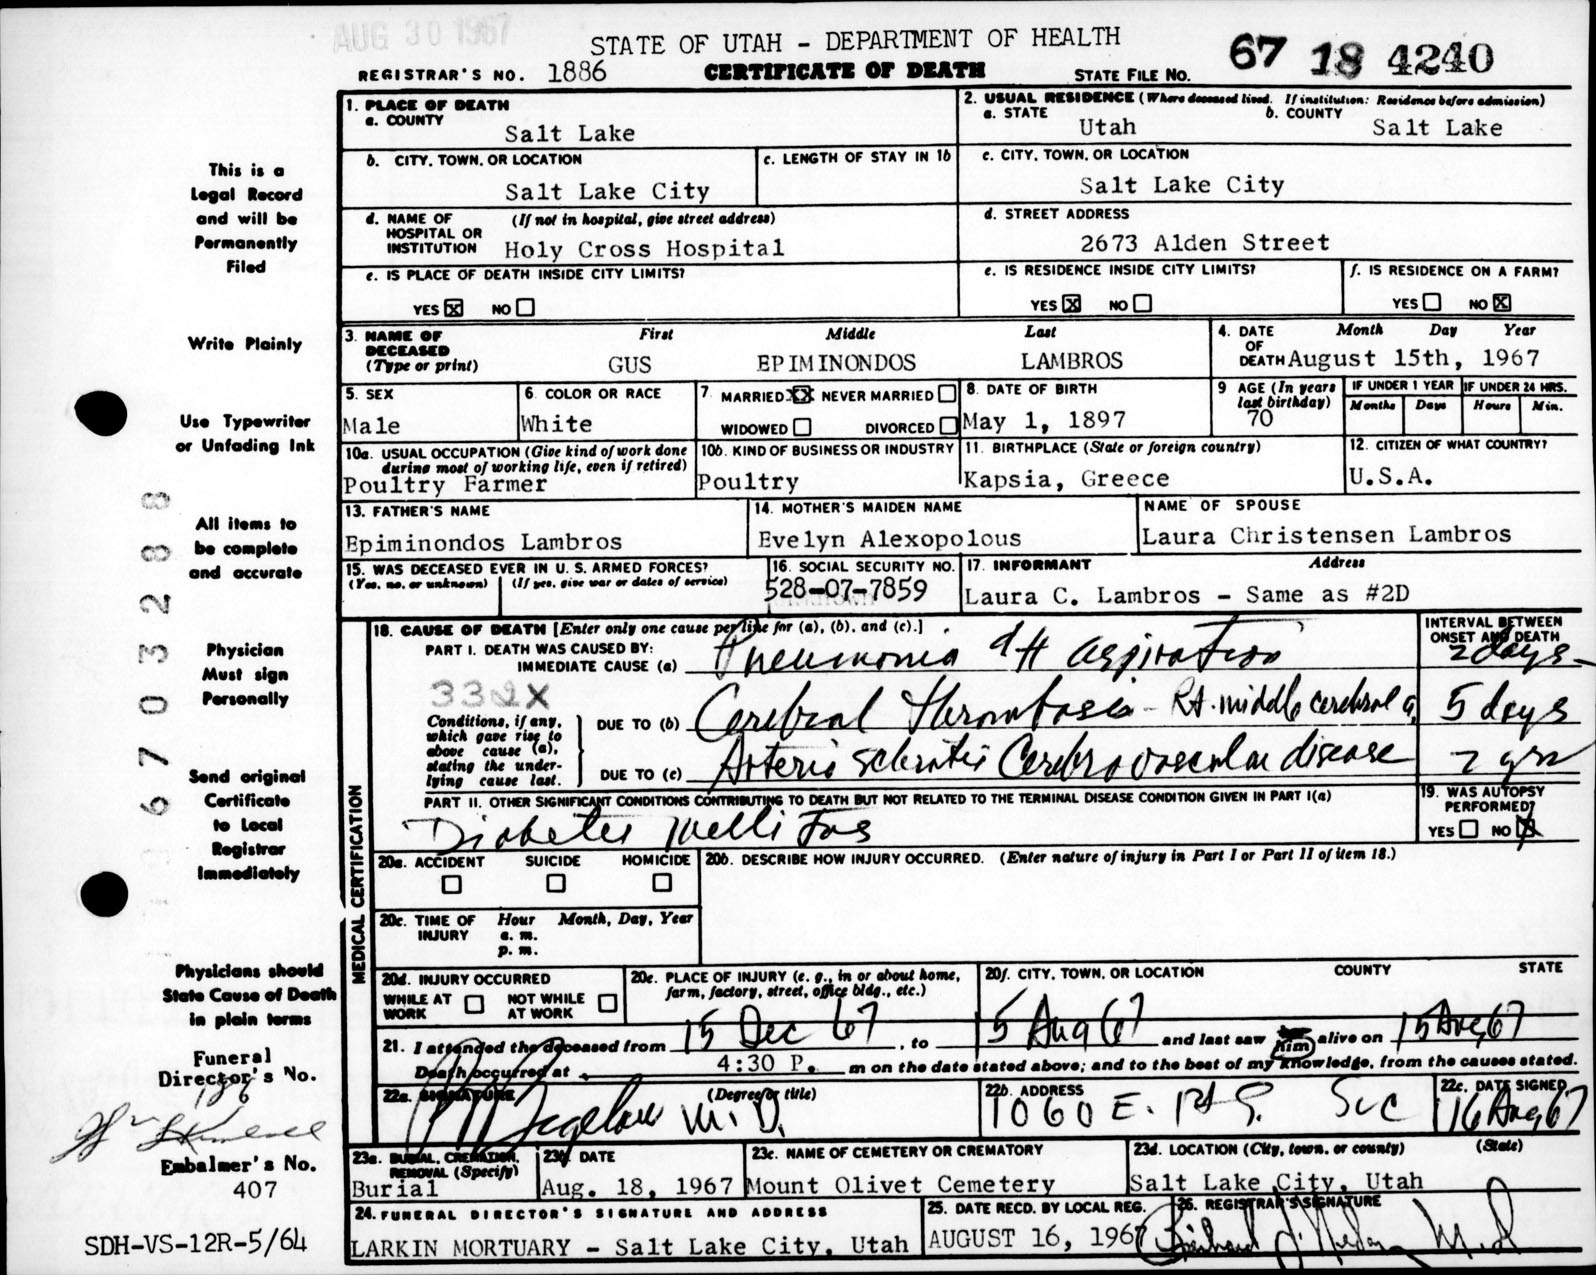 AUG 30 1967
STATE OF UTAH - DEPARTMENT OF HEALTH
REGISTRAR'S NO. 1886 CERTIFICATE OF DEATH STATE FILE NO. 67 18 4240
1. PLACE OF DEATH
a. COUNTY
Salt Lake
2. USUAL RESIDENCE (Where deceased lived. If institution: Residence before admission)
a. STATE Utah b. COUNTY Salt Lake
b. CITY, TOWN, OR LOCATION
Salt Lake City
c. LENGTH OF STAY IN 1b
c. CITY, TOWN, OR LOCATION
Salt Lake City
d. NAME OF HOSPITAL OR INSTITUTION (If not in hospital, give street address)
Holy Cross Hospital
d. STREET ADDRESS
2673 Alden Street
e. IS PLACE OF DEATH INSIDE CITY LIMITS?
YES ☒ NO ☐
e. IS RESIDENCE INSIDE CITY LIMITS?
YES ☒ NO ☐
f. IS RESIDENCE ON A FARM?
YES ☐ NO ☒
3. NAME OF DECEASED (Type or print) First Middle Last
GUS EPIMINONDOS LAMBROS
4. DATE OF DEATH Month Day Year
August 15th, 1967
5. SEX
Male
6. COLOR OR RACE
White
7. MARRIED ☒ NEVER MARRIED ☐
WIDOWED ☐ DIVORCED ☐
8. DATE OF BIRTH
May 1, 1897
9 AGE (In years last birthday)
70
IF UNDER 1 YEAR IF UNDER 24 HRS.
Months Days Hours Min.
10a. USUAL OCCUPATION (Give kind of work done during most of working life, even if retired)
Poultry Farmer
10b. KIND OF BUSINESS OR INDUSTRY
Poultry
11. BIRTHPLACE (State or foreign country)
Kapsia, Greece
12. CITIZEN OF WHAT COUNTRY?
U.S.A.
13. FATHER'S NAME
Epiminondos Lambros
14. MOTHER'S MAIDEN NAME
Evelyn Alexopolous
NAME OF SPOUSE
Laura Christensen Lambros
15. WAS DECEASED EVER IN U. S. ARMED FORCES?
(Yes, no, or unknown) (If yes, give war or dates of service)
16. SOCIAL SECURITY NO.
528-07-7859
17. INFORMANT Address
Laura C. Lambros - Same as #2D
MEDICAL CERTIFICATION
18. CAUSE OF DEATH [Enter only one cause per line for (a), (b), and (c).]
INTERVAL BETWEEN ONSET AND DEATH
PART I. DEATH WAS CAUSED BY:
IMMEDIATE CAUSE (a) Pneumonia aspiration 2 days
332X
Conditions, if any, which gave rise to above cause (a), stating the underlying cause last.
DUE TO (b) Cerebral thrombosis - Rt. middle cerebral a. 5 days
DUE TO (c) Arterio sclerotic Cerebrovascular disease 2 yrs
PART II. OTHER SIGNIFICANT CONDITIONS CONTRIBUTING TO DEATH BUT NOT RELATED TO THE TERMINAL DISEASE CONDITION GIVEN IN PART I(a)
Diabetes Mellitus
19. WAS AUTOPSY PERFORMED?
YES ☐ NO ☒
20a. ACCIDENT SUICIDE HOMICIDE
☐ ☐ ☐
20b. DESCRIBE HOW INJURY OCCURRED. (Enter nature of injury in Part I or Part II of item 18.)
20c. TIME OF INJURY Hour Month, Day, Year
a. m.
p. m.
20d. INJURY OCCURRED
WHILE AT WORK ☐ NOT WHILE AT WORK ☐
20e. PLACE OF INJURY (e. g., in or about home, farm, factory, street, office bldg., etc.)
20f. CITY, TOWN, OR LOCATION COUNTY STATE
21. I attended the deceased from 15 Dec 67, to 15 Aug 67 and last saw him alive on 15 Aug 67
Death occurred at 4:30 P. m on the date stated above; and to the best of my knowledge, from the causes stated.
22a. SIGNATURE (Degree or title)
Bigelow M.D.
22b. ADDRESS
1060 E. 1st S. SLC
22c. DATE SIGNED
16 Aug 67
23a. BURIAL, CREMATION, REMOVAL (Specify)
Burial
23b. DATE
Aug. 18, 1967
23c. NAME OF CEMETERY OR CREMATORY
Mount Olivet Cemetery
23d. LOCATION (City, town, or county) (State)
Salt Lake City, Utah
24. FUNERAL DIRECTOR'S SIGNATURE AND ADDRESS
LARKIN MORTUARY - Salt Lake City, Utah
25. DATE RECD. BY LOCAL REG.
AUGUST 16, 1967
26. REGISTRAR'S SIGNATURE
This is a
Legal Record
and will be
Permanently
Filed
Write Plainly
Use Typewriter
or Unfading Ink
All items to
be complete
and accurate
Physician
Must sign
Personally
Send original
Certificate
to Local
Registrar
Immediately
Physicians should
State Cause of Death
in plain terms
Funeral
Director's No.
186
Embalmer's No.
407
SDH-VS-12R-5/64
6703288